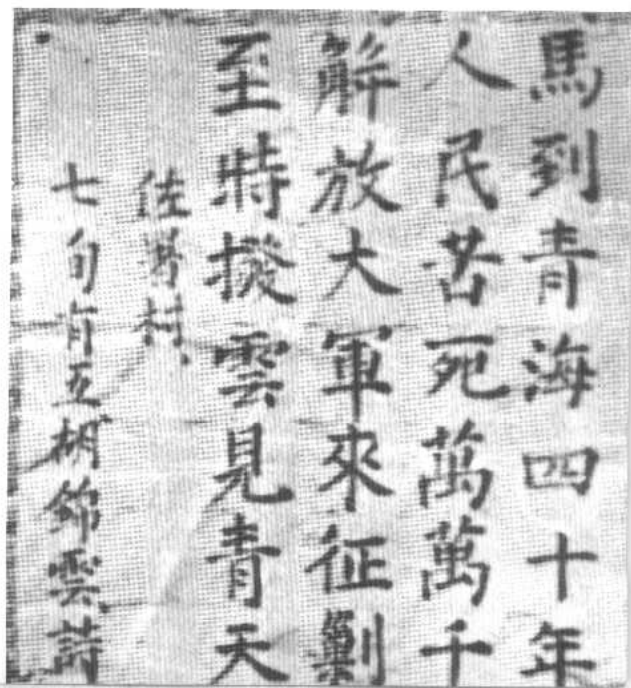 馬到青海四十年
人民苦死萬萬千
解放大軍來征剿
至時撥雲見青天
佐署村
七旬有五胡錦雲詩